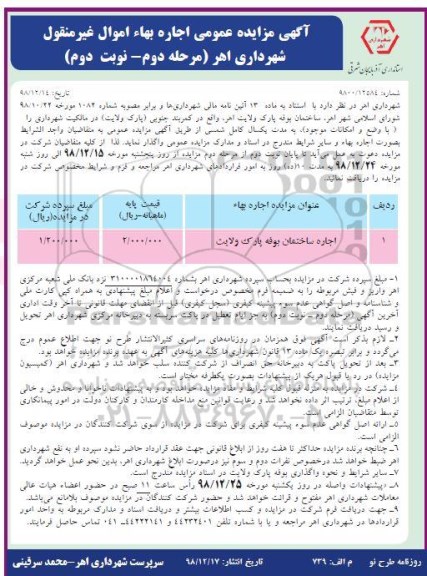 آگهی مزایده عمومی اجاره بهاء اموال غیرمنقول
شهرداری اهر (مرحله دوم- نوبت دوم)
استانداری آذربایجان شرقی
تاریخ: ۹۸/۱۲/۱۴
شهرداری اهر در نظر دارد با استناد به ماده ۱۳ آئین نامه مالی شهرداری‌ها و برابر مصوبه شماره ۱۰۸۲ مورخه ۹۸/۱۰/۲۲
شورای اسلامی شهر اهر، ساختمان بوفه پارک ولایت اهر، واقع در کمربند جنوبی (پارک ولایت) در مالکیت شهرداری را
( با وضع و امکانات موجود)، به مدت یکسال کامل شمسی از طریق آگهی مزایده عمومی به متقاضیان واجد الشرایط
بصورت اجاره بهاء و سایر شرایط مندرج در اسناد و مدارک مزایده عمومی واگذار نماید. لذا از کلیه متقاضیان شرکت در
مزایده دعوت به عمل می‌آید تا پایان نوبت دوم از مرحله دوم مزایده از روز پنجشنبه مورخه ۹۸/۱۲/۱۵ الی روز شنبه
مورخه ۹۸/۱۲/۲۴ به مدت ۱۰(ده) روز به امور قراردادهای شهرداری اهر مراجعه و فرم و شرایط مخصوص شرکت در
مزایده را دریافت نمایند.
ردیف عنوان مزایده اجاره بهاء قیمت پایه (ماهیانه-ریال) مبلغ سپرده شرکت در مزایده(ریال)
۱ اجاره ساختمان بوفه پارک ولایت ۲/۰۰۰/۰۰۰ ۱/۲۰۰/۰۰۰
۱- مبلغ سپرده شرکت در مزایده بحساب سپرده شهرداری اهر بشماره ۳۱۰۰۰۰۱۸۶۴۰۰۴ نزد بانک ملی شعبه مرکزی
اهر واریز و فیش مربوطه را به ضمیمه فرم مخصوص درخواست و اعلام مبلغ پیشنهادی به همراه کپی کارت ملی
و شناسنامه و اصل گواهی عدم سوء پیشینه کیفری (سجل کیفری) قبل از انقضای مهلت قانونی تا آخر وقت اداری
آخرین آگهی (مرحله دوم - نوبت دوم) به جز ایام تعطیل در پاکت سربسته به دبیرخانه مرکزی شهرداری اهر تحویل
و رسید دریافت نمایند.
۲- لازم بذکر است آگهی فوق همزمان در روزنامه‌های سراسری کثیرالانتشار طرح نو جهت اطلاع عموم درج
می‌گردد و برابر تبصره یک ماده ۱۳ قانون شهرداری‌ها کلیه هزینه‌های آگهی به عهده برنده مزایده خواهد بود.
۳- بعد از تحویل پاکت به دبیرخانه حق انصراف از شرکت کننده سلب خواهد شد و شهرداری اهر (کمیسیون
مزایده) در رد یا قبول هر یک از پیشنهادات بصورت یکطرفه مختار است.
۴- شرکت در مزایده به منزله قبول کلیه شرایط و مفاد مزایده خواهد بود و به پیشنهادات ناخوانا و مخدوش و خالی
از اعلام مبلغ، ترتیب اثر داده نخواهد شد و رعایت قوانین منع مداخله کارمندان و کارکنان دولت در امور پیمانکاری
توسط متقاضیان الزامی است.
۵- ارائه اصل گواهی عدم سوء پیشینه کیفری برای شرکت در مزایده، از سوی شرکت کنندگان در مزایده موصوف
الزامی است.
۶- چنانچه برنده مزایده حداکثر تا هفت روز از ابلاغ قانونی جهت عقد قرارداد حاضر نشود سپرده او به نفع شهرداری
اهر ضبط خواهد شد درخصوص نفرات دوم و سوم نیز درصورت ابلاغ شهرداری اهر، بدین نحو عمل خواهد گردید.
۷- سایر شرایط و نحوه واگذاری بوفه پارک ولایت در اسناد مزایده مندرج است.
۸- پیشنهادات واصله در روز یکشنبه مورخه ۹۸/۱۲/۲۵ رأس ساعت ۱۱ صبح در حضور اعضاء هیات عالی
معاملات شهرداری اهر مفتوح و قرائت خواهد شد و حضور شرکت کنندگان در مزایده موصوف بلامانع می‌باشد.
۹- جهت دریافت فرم شرکت در مزایده و کسب اطلاعات بیشتر و دریافت اسناد و مدارک مربوطه به واحد امور
قراردادها در شهرداری اهر مراجعه و یا با شماره تلفن ۴۴۲۳۲۴۰۱ و ۴۴۲۲۲۱۴۱-۰۴۱ تماس حاصل فرمایند.
روزنامه طرح نو م الف: ۷۳۹ تاریخ انتشار: ۹۸/۱۲/۱۷ سرپرست شهرداری اهر-محمد سرقینی